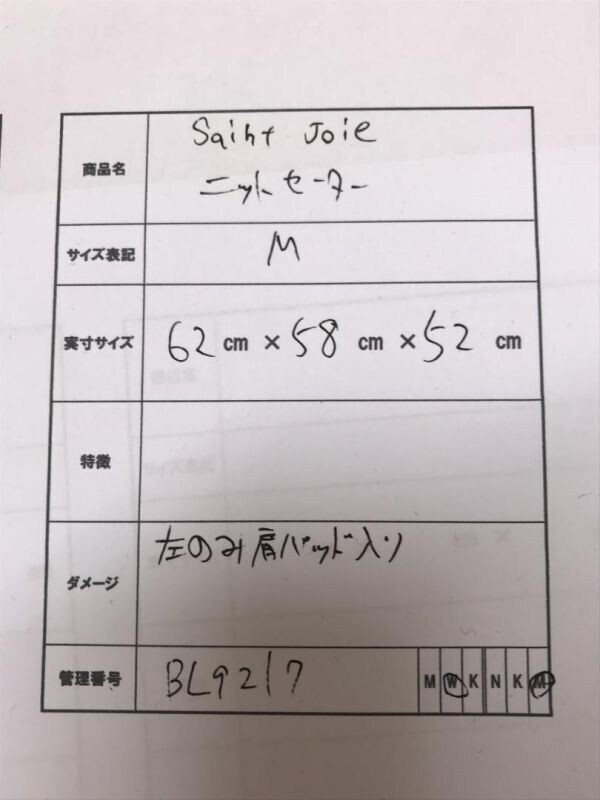 商品名 Saint Joie
ニットセーター
サイズ表記 M
実寸サイズ 62 cm × 58 cm × 52 cm
特徴
ダメージ 左のみ肩パッド入り
管理番号 BL9217 M W K N K M